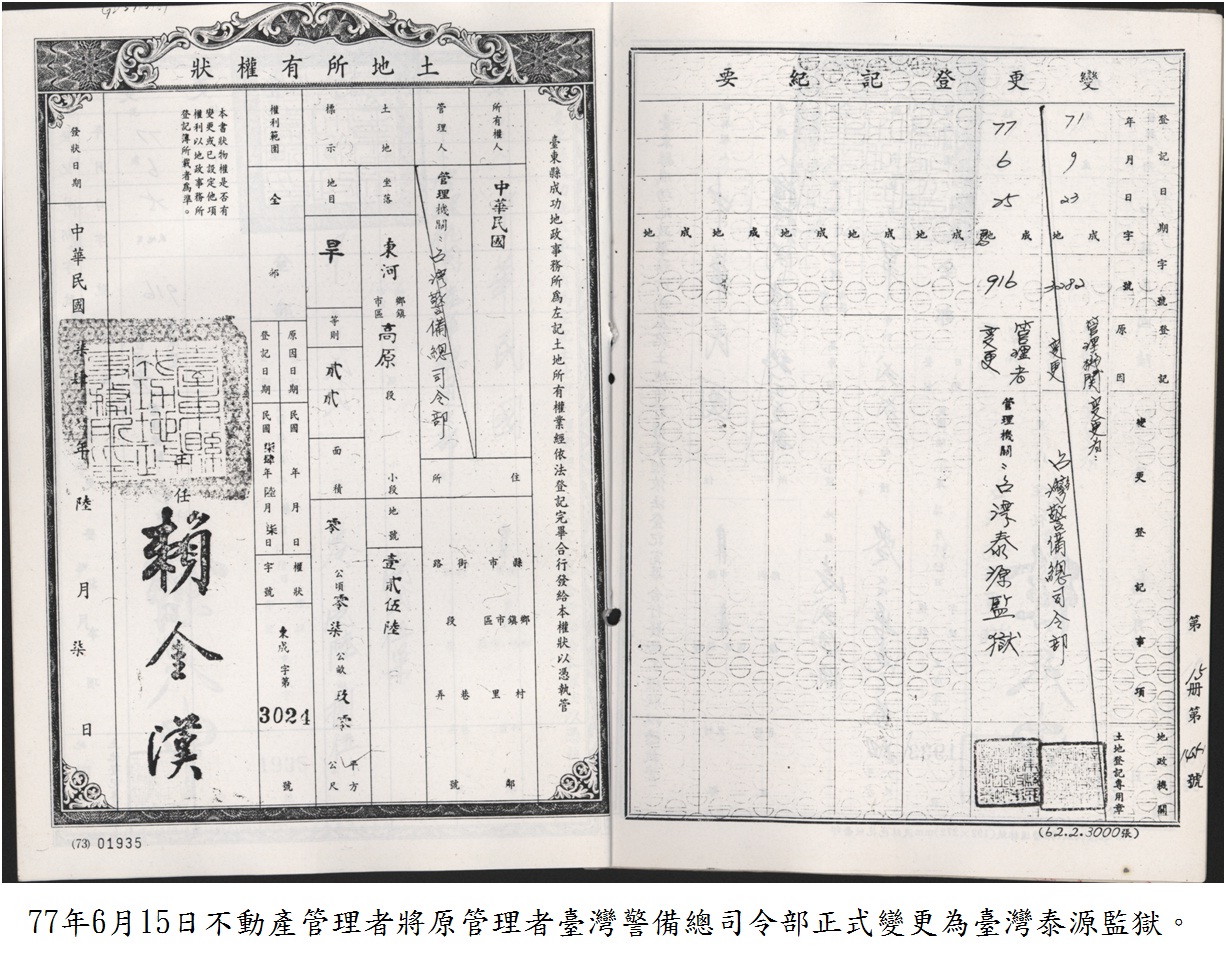 土地所有權狀
臺東縣成功地政事務所爲左記土地所有權業經依法登記完畢合行發給本權狀以憑執管
所有權人
中華民國
住
所
縣市街路
鄉鎮市區段
村里巷弄
鄰號
管理人
管理機關：台灣警備總司令部
土地標示
坐落
東河
鄉鎮市區
高原
段
小段
地號
壹貳伍陸
地目
旱
等則
貳貳
面積
零
公頃
零柒
公畝
玖零
平方公尺
權利範圍
全部
原因日期
民國年月日
登記日期
民國柒肆年陸月柒日
權狀字號
東成字第
3024
號
本書狀物權是否有
變更或已設定他項
權利以地政事務所
登記簿所載者爲準。
主任
賴金漢
發狀日期
中華民國柒肆年陸月柒日
(73) 01935
變更登記紀要
登記日期字號
年月日字
登記原因
變更登記事項
地政機關
土地登記專用章
71
9
23
成地
3282
管理機關變更
變更者：
台灣警備總司令部
77
6
25
成地
916
管理者
變更
管理機關：台灣泰源監獄
成地
成地
成地
成地
成地
第15册第
號
(62.2.3000張)
77年6月15日不動產管理者將原管理者臺灣警備總司令部正式變更為臺灣泰源監獄。